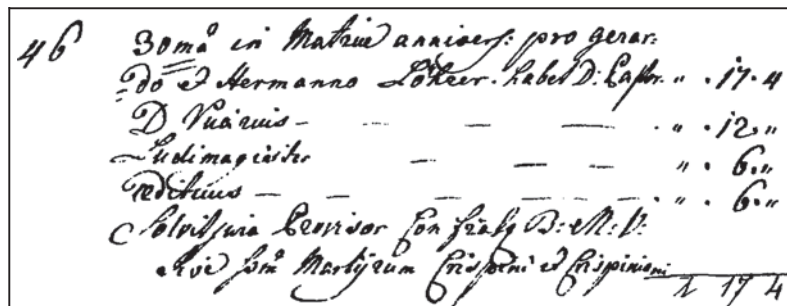 46 30mâ in Matrice annivers: pro gerar:
do et Hermanno Löhrer. habet D: Pastor. " . 17. 4
D Vicarius — — — — . " . 12. "
Ludimagister — — — " . 6. "
Ædituus — — — — — . " . 6. "
Solvit jura Provisor Confrat B: M: V:
sive SSm Martÿrum Crispini et Crispiniani
1 17 4